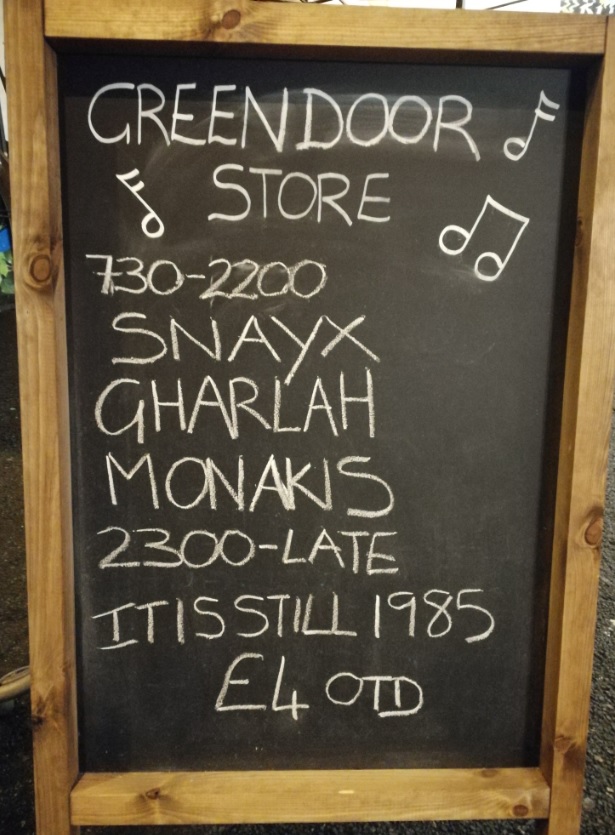 GREENDOOR
STORE
730-2200
SNAYX
GHARLAH
MONAKIS
2300-LATE
IT IS STILL 1985
£4 OTD